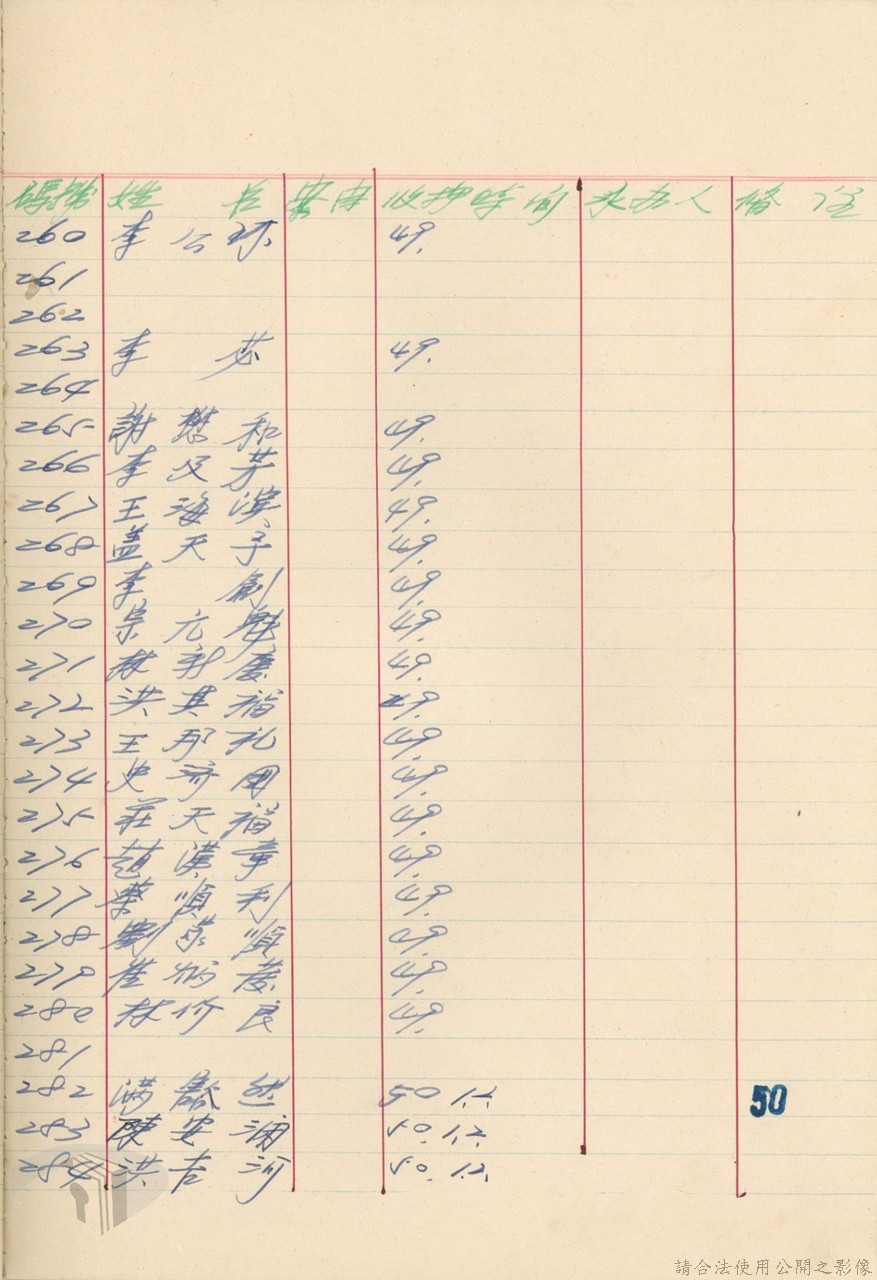 碼號 姓 名 案由 收押時間 承办人 備註
260 李 公 球 49.
261
262
263 李 苾 49.
264
265 謝 懋 和 49.
266 李 及 芳 49.
267 王 海 濱 49.
268 盖 天 予 49.
269 李 創 49.
270 宗 元 魁 49.
271 林 新 慶 49.
272 洪 其 福 49.
273 王 那 礼 49.
274 史 濟 田 49.
275 莊 天 福 49.
276 趙 漢 章 49.
277 榮 順 利 49.
278 劉 景 順 49.
279 崔 炳 葰 49.
280 林 价 良 49.
281
282 满 豁 然 50 1.2. 50
283 陳 安 浦 50. 1.2.
284 洪 吉 河 50. 1.2.
請合法使用公開之影像